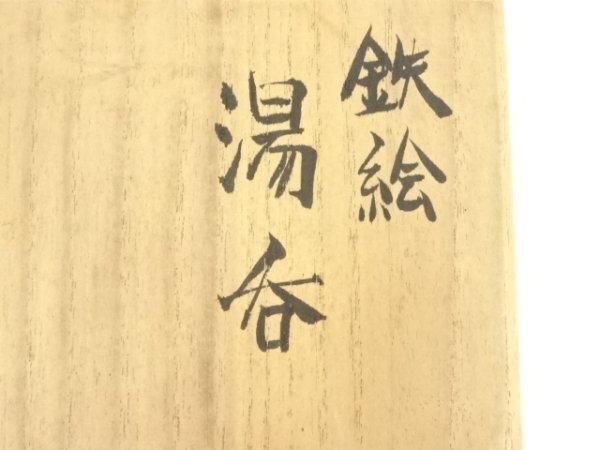 鉄絵
湯呑